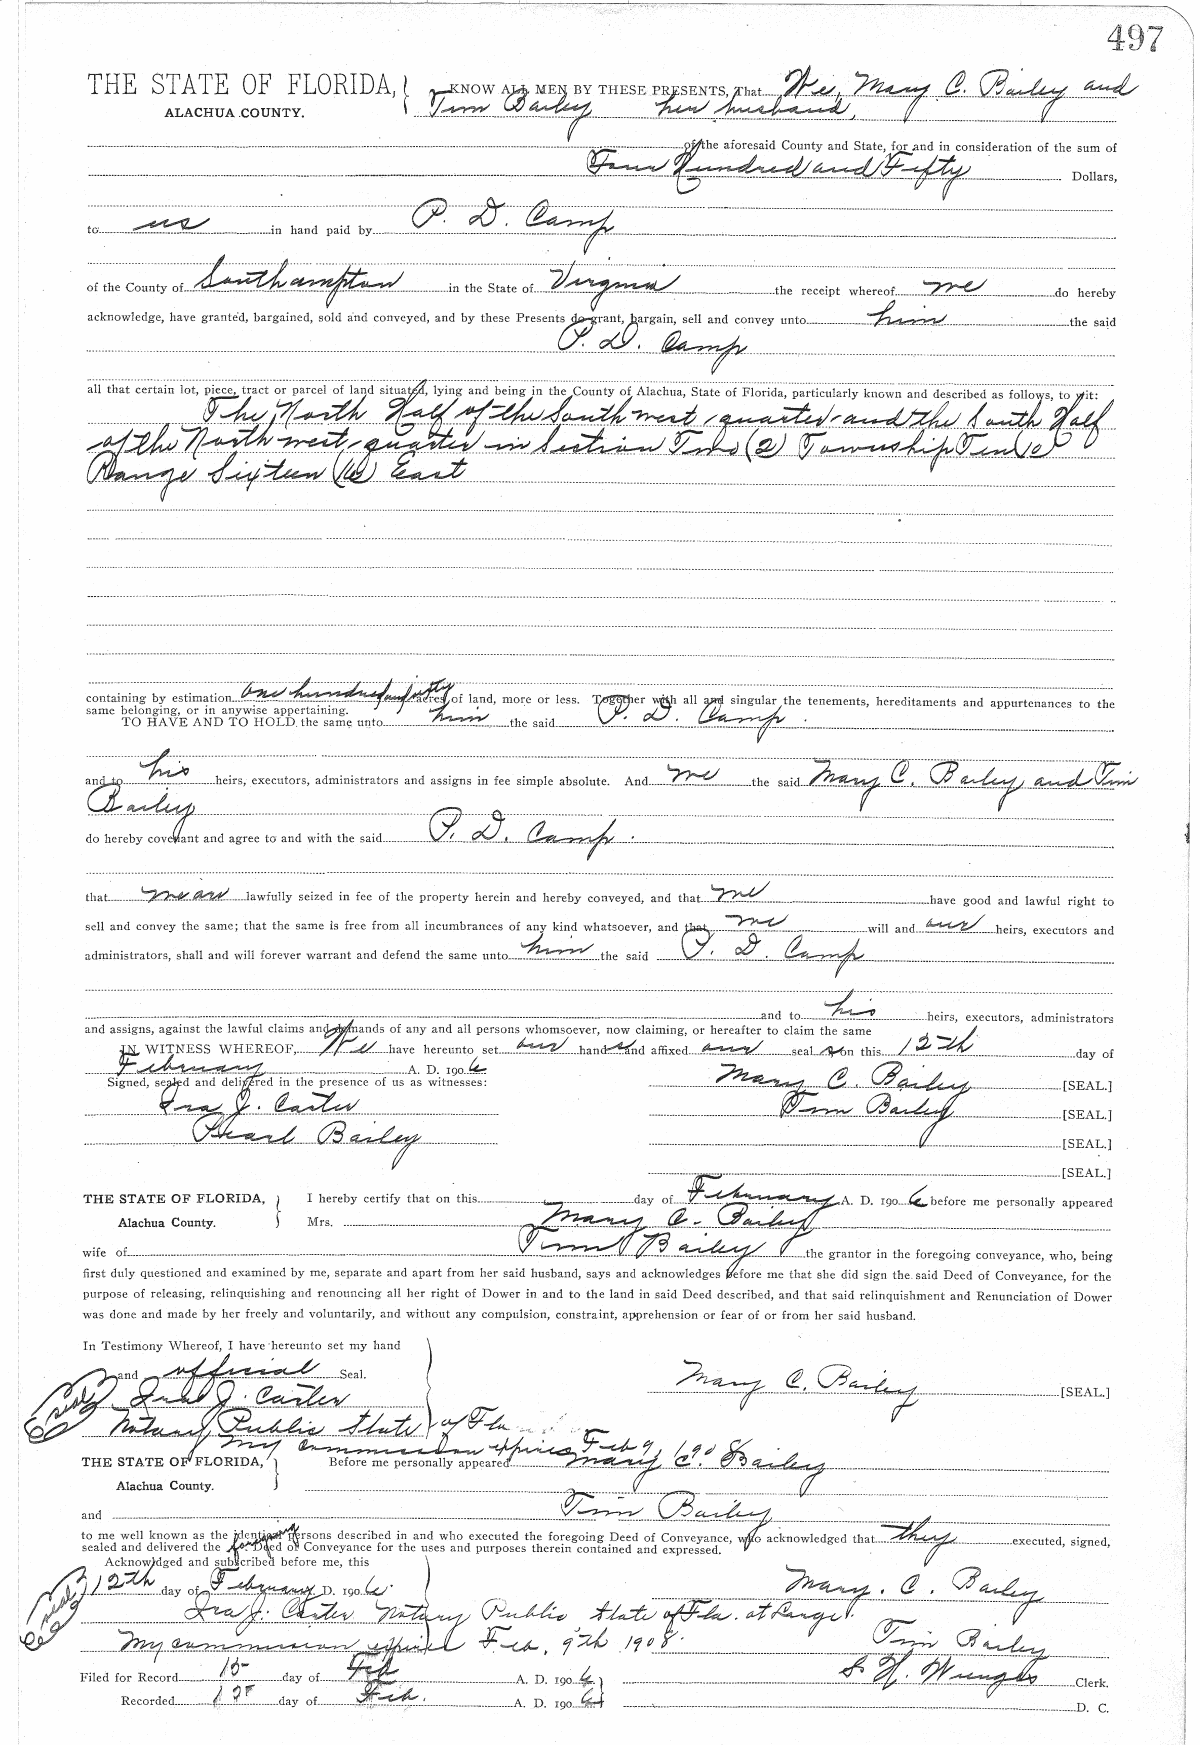 497
THE STATE OF FLORIDA, KNOW ALL MEN BY THESE PRESENTS, That We, Mary C. Bailey and
ALACHUA COUNTY. Tim Bailey her husband,
of the aforesaid County and State, for and in consideration of the sum of
Four Hundred and Fifty Dollars,
to us in hand paid by P. D. Camp
of the County of Southampton in the State of Virginia the receipt whereof we do hereby
acknowledge, have granted, bargained, sold and conveyed, and by these Presents do grant, bargain, sell and convey unto him the said
P. D. Camp
all that certain lot, piece, tract or parcel of land situated, lying and being in the County of Alachua, State of Florida, particularly known and described as follows, to wit:
The North Half of the South west quarter and the South Half
of the North west quarter in Section Two (2) Township Ten (10)
Range Sixteen (16) East
containing by estimation one hundred and sixty acres of land, more or less. Together with all and singular the tenements, hereditaments and appurtenances to the
same belonging, or in anywise appertaining.
TO HAVE AND TO HOLD the same unto him the said P. D. Camp.
and to his heirs, executors, administrators and assigns in fee simple absolute. And we the said Mary C. Bailey and Tim
Bailey
do hereby covenant and agree to and with the said P. D. Camp.
that we are lawfully seized in fee of the property herein and hereby conveyed, and that we have good and lawful right to
sell and convey the same; that the same is free from all incumbrances of any kind whatsoever, and that we will and our heirs, executors and
administrators, shall and will forever warrant and defend the same unto him the said P. D. Camp
and to his heirs, executors, administrators
and assigns, against the lawful claims and demands of any and all persons whomsoever, now claiming, or hereafter to claim the same
IN WITNESS WHEREOF, We have hereunto set our hands and affixed our seal s on this 12th day of
February A. D. 1906
Signed, sealed and delivered in the presence of us as witnesses: Mary C. Bailey [SEAL.]
Ira J. Carter Tim Bailey [SEAL.]
Pearl Bailey [SEAL.]
[SEAL.]
THE STATE OF FLORIDA, I hereby certify that on this day of February A. D. 1906 before me personally appeared
Alachua County. Mrs. Mary C. Bailey
wife of Tim Bailey the grantor in the foregoing conveyance, who, being
first duly questioned and examined by me, separate and apart from her said husband, says and acknowledges before me that she did sign the said Deed of Conveyance, for the
purpose of releasing, relinquishing and renouncing all her right of Dower in and to the land in said Deed described, and that said relinquishment and Renunciation of Dower
was done and made by her freely and voluntarily, and without any compulsion, constraint, apprehension or fear of or from her said husband.
In Testimony Whereof, I have hereunto set my hand
and official Seal. Mary C. Bailey [SEAL.]
seal Ira J. Carter
Notary Public State of Fla
My commission expires Feb 9, 1908
THE STATE OF FLORIDA, Before me personally appeared Mary C. Bailey
Alachua County.
and Tim Bailey
to me well known as the identical persons described in and who executed the foregoing Deed of Conveyance, who acknowledged that they executed, signed,
sealed and delivered the foregoing Deed of Conveyance for the uses and purposes therein contained and expressed.
Acknowledged and subscribed before me, this
seal 12th day of February A. D. 1906. Mary. C. Bailey
Ira J. Carter Notary Public State of Fla. at Large.
My commission expires Feb, 9th 1908. Tim Bailey
Filed for Record 15 day of Feb A. D. 1906 S. H. Wienges Clerk.
Recorded day of Feb. A. D. 1906 D. C.